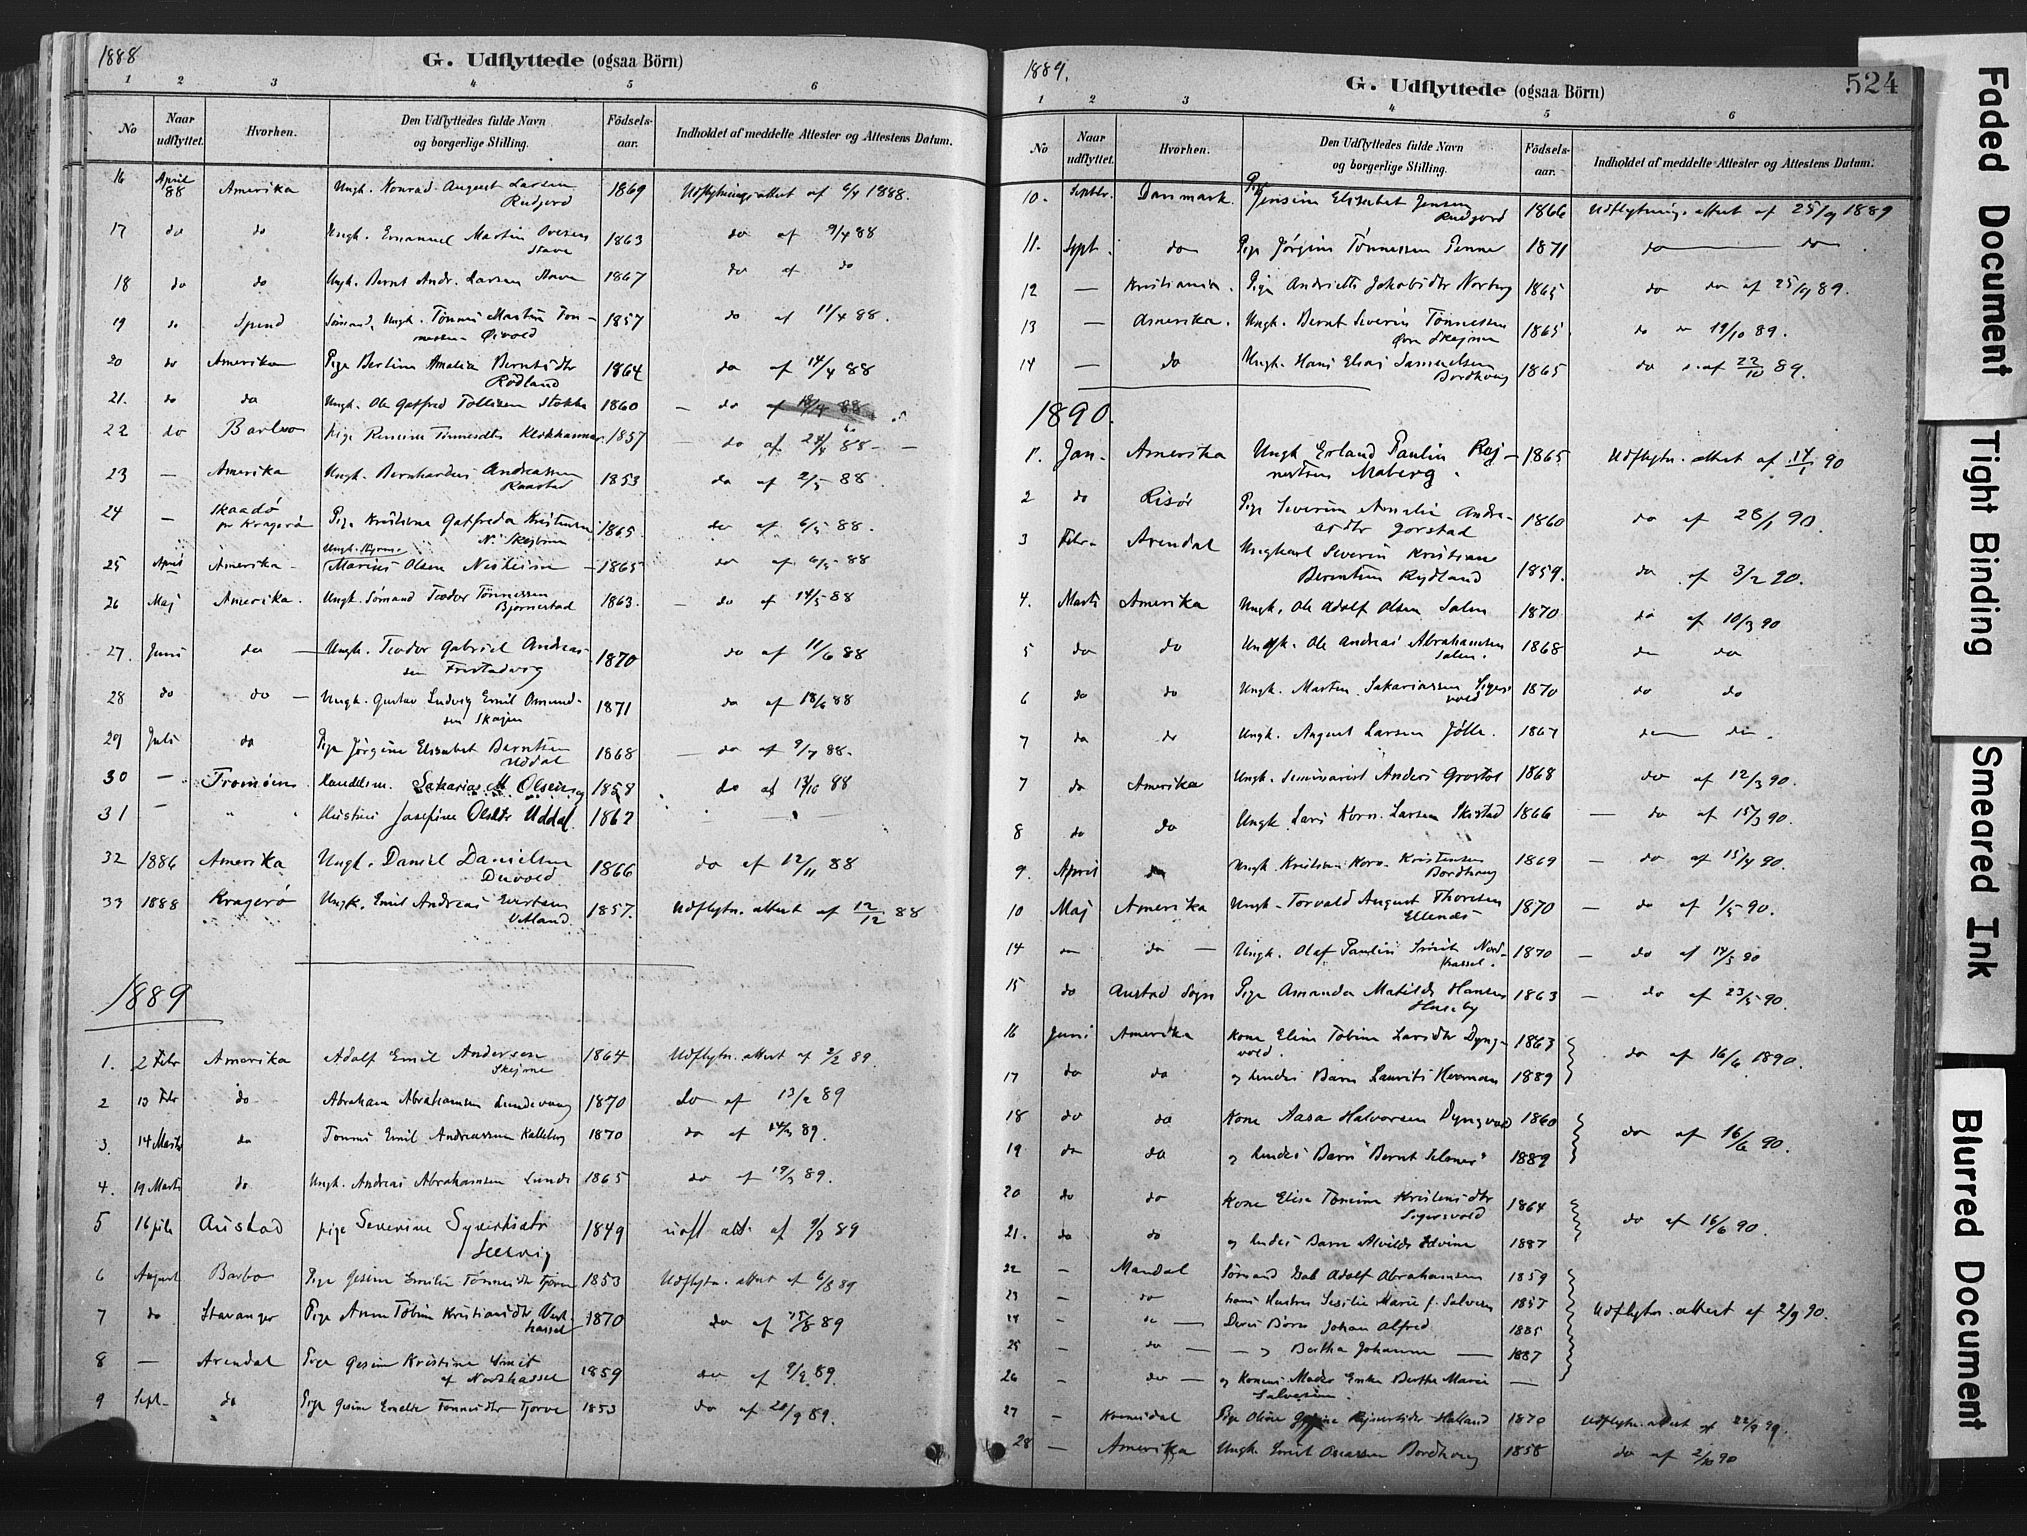 1888
G. Udflyttede (ogsaa Börn)
1 2 3 4 5 6
No
Naar udflyttet.
Hvorhen.
Den Udflyttedes fulde Navn og borgerlige Stilling.
Födsels-aar.
Indholdet af meddelte Attester og Attestens Datum.
16 April 88 Amerika Ungk. Konrad August Larsen 1869 Udflytningsattest af 6/4 1888.
17 do do Ungk. Emanuel Martin Ovesen Stave 1863 do af 9/4 88
18 do do Ungk. Bernt Andr. Larsen Stave 1867 do af do
19 do Spind Sömand, Ungk. Tönnes Martin Tön-
nessen Öivold 1857 do af 11/4 88.
20 do Amerika Pige Berline Amalia Berntsdtr
Rödland 1864 do af 14/4 88
21. do do Ungk. Ole Gotfred Tollisen Stokke 1860 – do af 18/4 88
22 do Barbo pige Tönnesdtr 1857 – do af 24/4 88 –
23 – Amerika Ungk. Bernhardus Andreassen
Raastad 1853 do af 2/5 88
24 – Skaadö
pr Kragerö Pige Kristine Gotfreda Kristensen
N. Skeibrok 1865 do af 6/5 88.
25 April Amerika – Ungk.
Marius Olsen Nesheim – 1865 do af 6/5 88
26 Maj Amerika. Ungk. Sömand Teodor Tönnessen
Bjørnestad 1863. – do af 14/5 88
27. Juni do – Ungk. Teodor Gabriel Andreas-
sen Frestadvog 1870 do af 11/6 88
28 do do – Ungk. Gustav Ludvig Emil Osmund-
sen Skagen 1871 do af 18/6 88
29 Juli do Pige Jörgine Elisabet Berntsen
Uddal 1868 – do af 9/7 88.
30 – Tromöen Handelsm. Sakarias M Olsen 1858 do af 13/10 88
31 – " " Hustru Josefine Olsdtr Uddal 1862 – " –
32 1886 Amerika Ungk. Daniel Danielsen
Deivold 1866 do af 12/11 88
33 1888 Kragerö Ungk. Emil Andreas Evertsen
Vatland 1857. Udflytn. attest af 12/12 88
1889
1. 2 Febr Amerika Adolf Emil Andersen 1864 Udflytn. attest af 2/2 89.
2 13 Febr do Abraham Abrahamsen Lundevaag 1870 do af 13/2 89
3. 14 Marts do Tönnes Emil Andreassen Kalleberg 1870 do af 14/3 89.
4. 19 Marts do Ungk. Andreas Abrahamsen Lunde 1865 do af 19/3 89.
5 Austad pige Severine Syvertsdtr 1849 udfl att. af 9/7 89
6 August Barbo Pige Gesine Emilie Tönnesdtr Tjørve 1853 Udflytn. attest af 6/8 89
7 do Stavanger Pige Anne Tobine Kristiansdtr Vest-
hassel 1870 do af 25/8 89
8 – Arendal Pige Gesine Kristine Smit
af Nordhassel 1859 do af 9/9 89.
9 Sept – do Pige Gesine Emelie Tönnesdtr Tjørve 1853 do af 21/9 89.
1889.
524
G. Udflyttede (ogsaa Börn)
1 2 3 4 5 6
No
Naar udflyttet.
Hvorhen.
Den Udflyttedes fulde Navn og borgerlige Stilling.
Födsels-aar.
Indholdet af meddelte Attester og Attestens Datum.
10. Septbr. Danmark. Pige Jensine Elisabet Jensen 1866 Udflytnings attest af 25/9 1889
11. Sept. do Pige Jörgine Tönnessen Penne 1871 do do
12 – Kristiania. Pige Andriette Jakobsdtr Norberg 1865 do do af 25/9 89.
13 – Amerika. Ungk. Bernt Severin Tönnessen 1865 do 19/10 89.
14 – do Ungk. Hans Elias Samuelsen
Bordhoug 1865 do af 22/10 89.
1890.
1. Jan. Amerika Ungk. Erland Paulin Rej-
nertsen Maberg. 1865 Udflytn. attest af 14/1 90
2 do Risör Pige Severine Amalie Andre-
asdtr Jorstad 1860 do af 28/1 90.
3 Febr. Arendal Ungkarl Severin Kristian
Berntsen Rydland 1859. do af 3/2 90.
4. Marts Amerika Ungk. Ole Adolf Olsen Salen 1870 do af 10/3 90
5 do do Ungk. Ole Andreas Abrahamsen
Salen. 1868 do do
6 do do Ungk. Morten Sakariassen Sigers-
vold 1870 do do
7 do do Ungk. August Larsen Jölle. 1867 do do.
7 do Amerika Ungk. Seminarist Anders Grostøl 1868 do af 12/3 90.
8 do do Ungk. Lars Korn. Larsen Skistad 1866 – do af 15/3 90.
9. April do Ungk. Kristian Korn. Kristensen
Bordhoug 1869 – do af 15/4 90.
10 Maj Amerika Ungk. Torvald August Thoresen
Ellenes 1870 – do af 1/5 90.
14 do do – Ungk. Olaf Paulin Smit Nord-
hassel. 1870 – do af 14/5 90
15 do Austad Sogn Pige Amanda Matilde Hansen
Huseby 1863 – do af 23/5 90.
16 Juni Amerika Kone Eline Tobine Larsdtr Dyng-
vold. 1863 do af 16/6 1890.
17 do do og hendes Barn Laurits Herman 1889
18 do do Kone Aasa Halvorsen Dyngvold 1860 do af 16/6 90.
19 do do og hendes Barn "Bernt Selmer" 1889
20 do do Kone Elise Tomine Kristensdtr
Sigersvold 1864 do af 16/6 90.
21. do do og hendes Barn Alvilde Edvine 1887
22 – Mandal Sömand Adolf Abrahamsen 1859
23 – do hans Hustru Sesilie Marie f. Salvesen 1857 Udflytn. attest af 2/9 90.
24 – do – Deres Börn Johan Alfred 1885
25 – do – – og Bertha Johanne – 1887
26 – do – og Konens Moder Enke Berthe Marie
Salvesen. –
27 – Kvinesdal Pige Oline Rejnertsdtr Halland 1870 Udflytn. attest af 22/9 90.
28 – Amerika Ungk. Emil Bordhoug 1858 do af 2/10 90
Faded Document
Tight Binding
Smeared Ink
Blurred Document